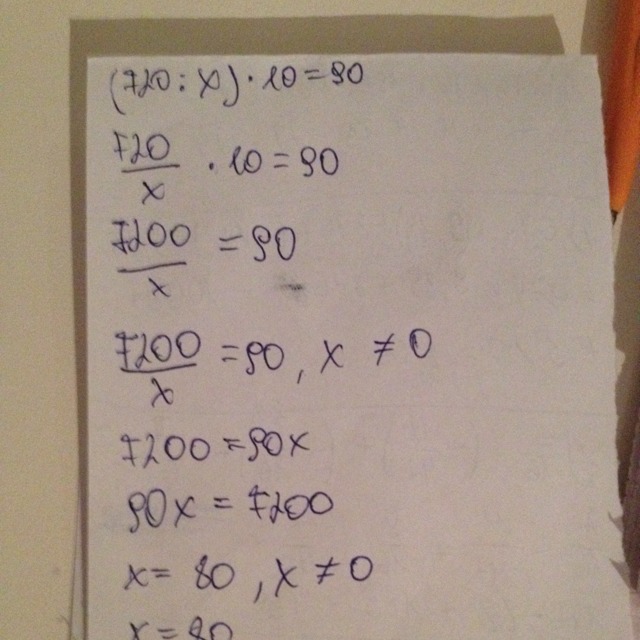 (720:x)·10=90
720/x · 10=90
7200/x =90
7200/x =90, x ≠ 0
7200=90x
90x = 7200
x= 80, x ≠ 0
x=80